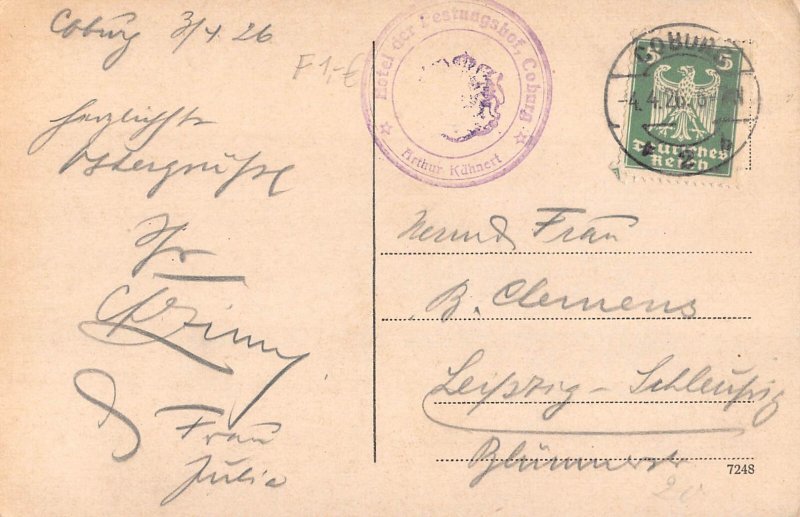 Coburg 3/4. 26
F 1,-€
herzlichste
Ostergrüße
Ihr
& Frau
Julia
Hotel der Festungshof, Coburg
Arthur Kühnert
COBURG
-4.4.26.
* 2
5 5
Deutsches
Reich
Herrn & Frau
B. Clemens
Leipzig-Schleußig
Blümnerstr
20
7248